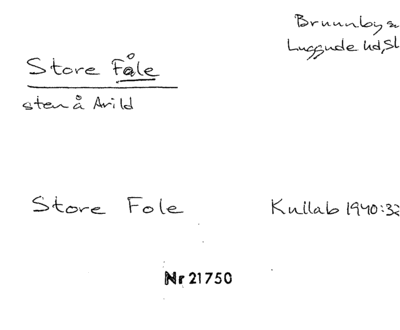 Brunnby s
Luggude hd, Sk
Store Fåle
sten å Arild
Store Fole
Kullab 1940:32
Nr 21750